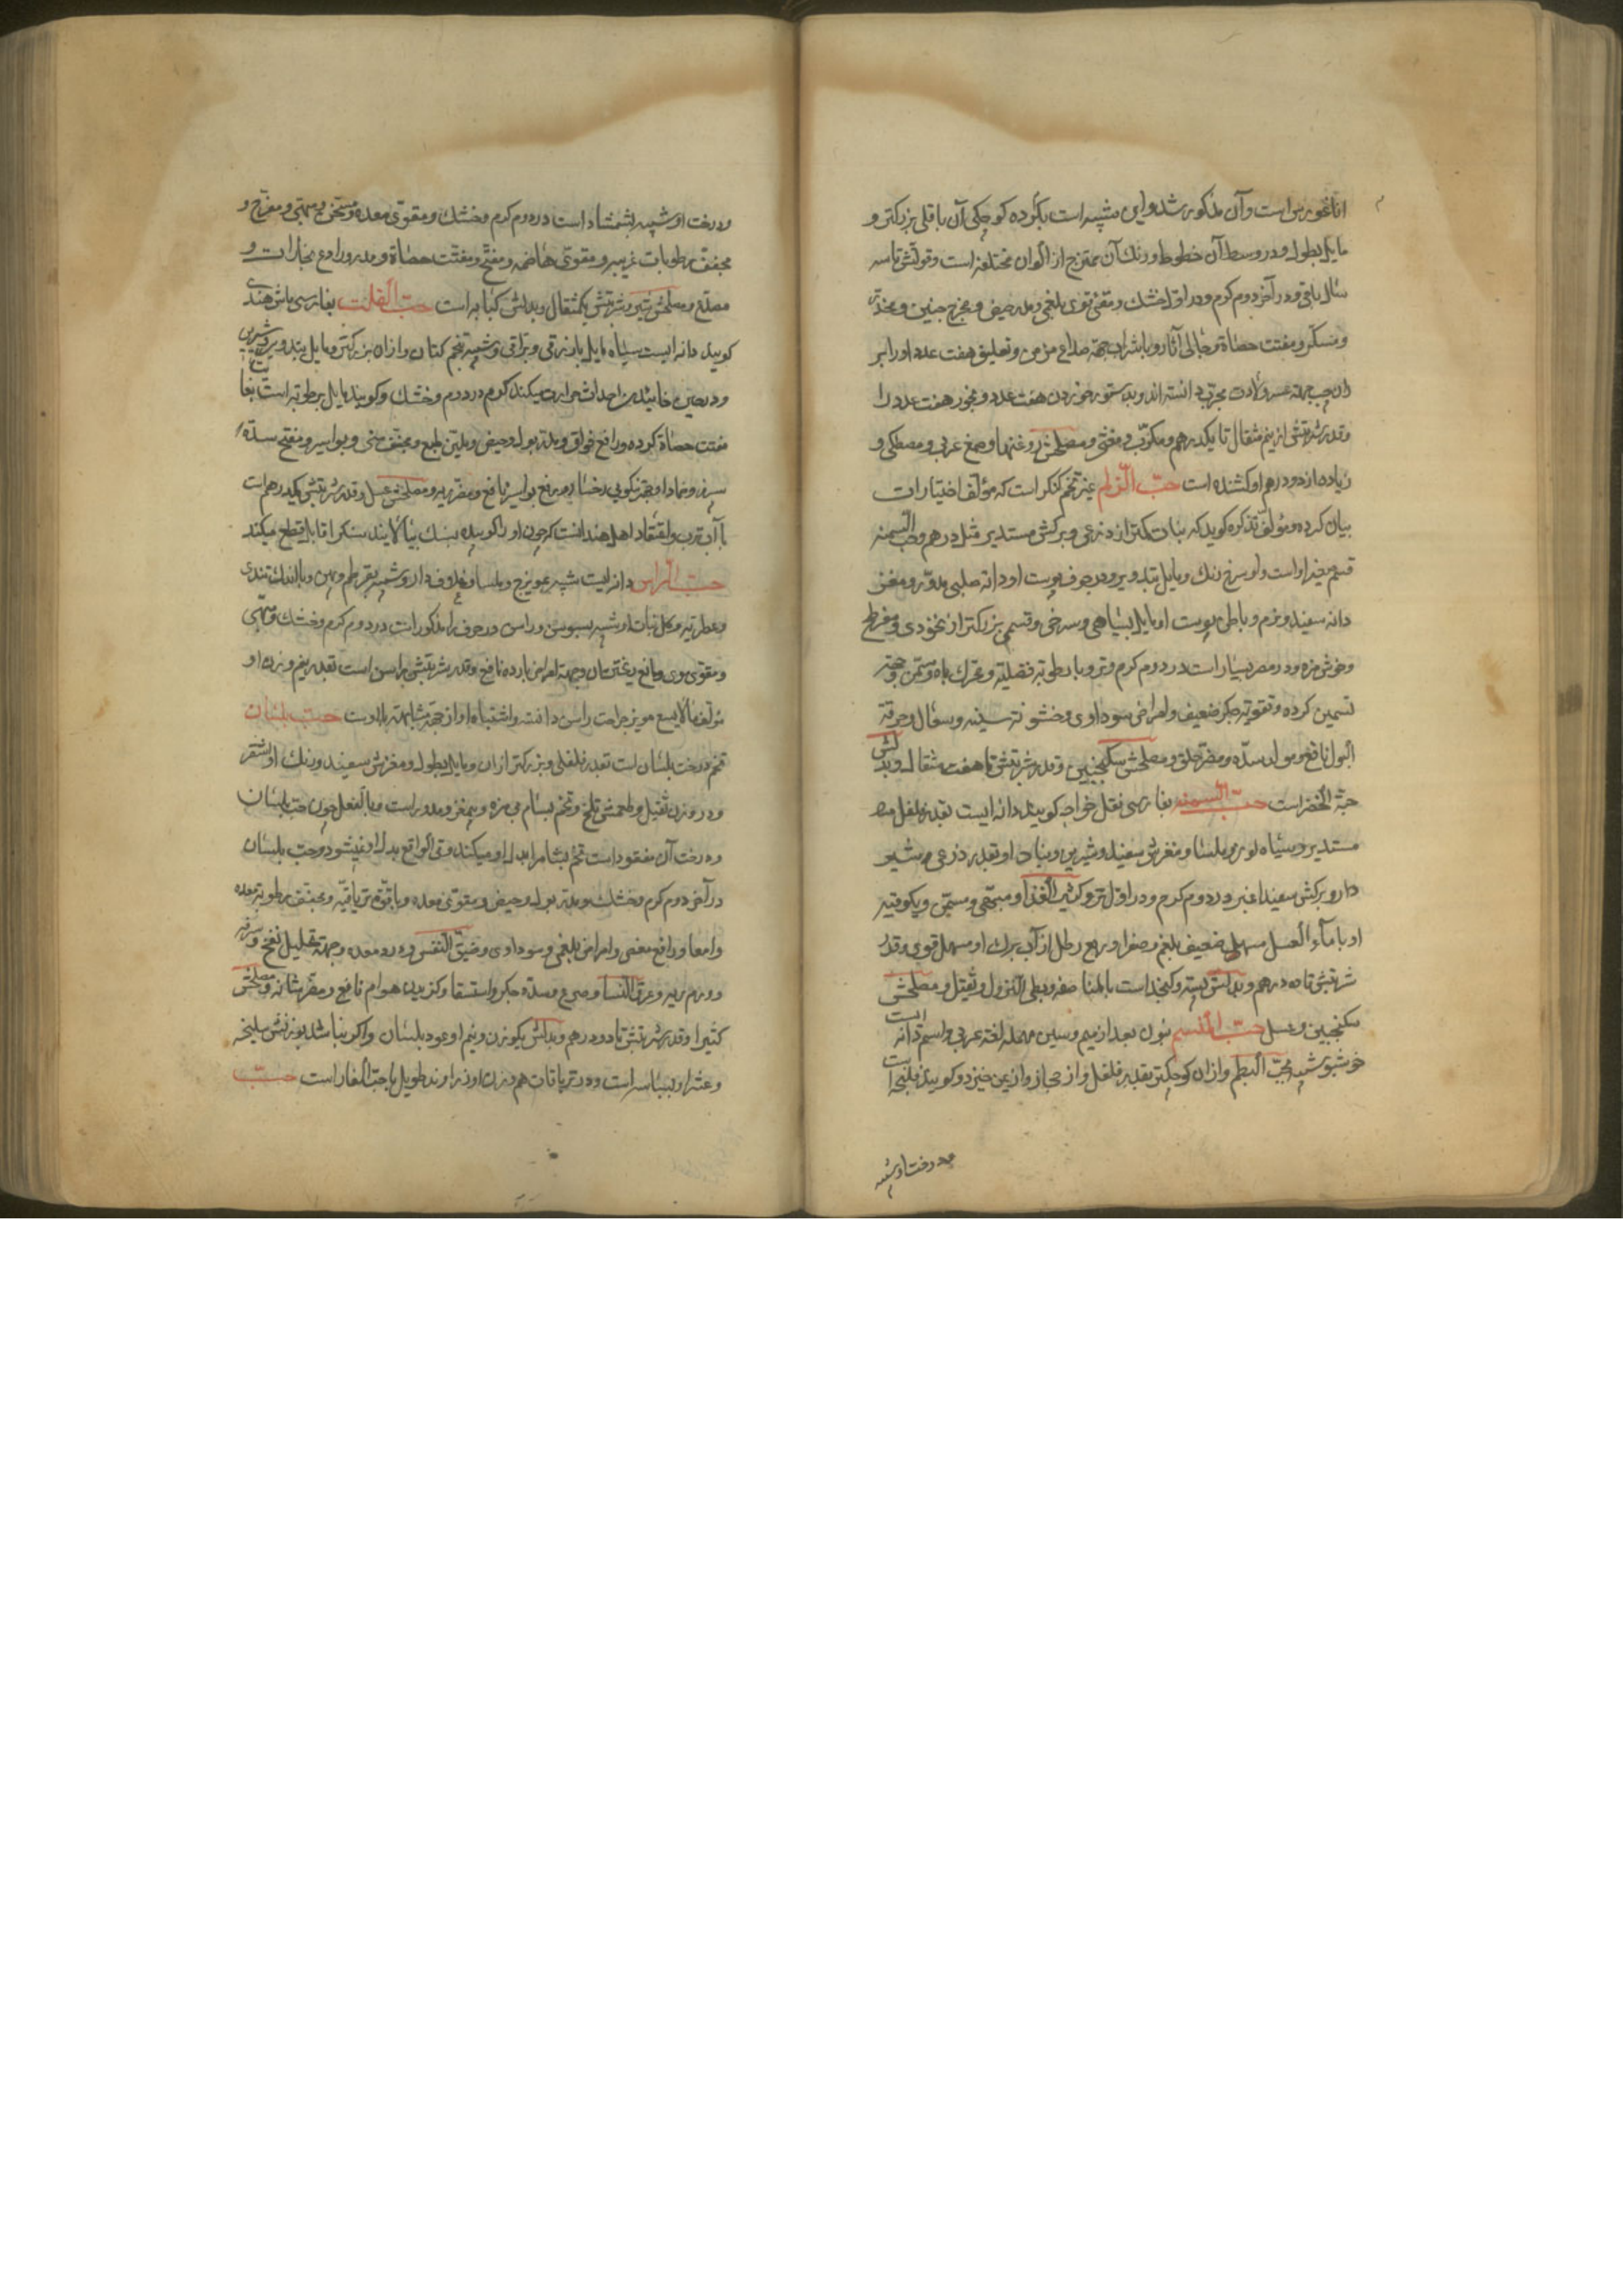 اناغورس است وآن مذکور شد واین شبیه است بکرده کوچکی آن باقلی بزرکتر و
مایل بطول ودر وسط آن خطوط ورنك آن ممتزج از الوان مختلفه است وقوتش تا سه
سال باقی ودر آخر دوم کرم ودر اول خشك ومقئ قوی بلغمی ومدر حیض ومخرج جنین ومخدر
ومسکر ومفتت حصاة وجالی آثار وبا شراب جهة صداع مزمن وتعلیق هفت عدد او را بر
ران جهة عسر ولادت مجرب دانسته اند وبدستور خوردن هفت عدد وبخور هفت عدد را
وقدر شربتش از نیم مثقال تا یکدرهم ومکرب ومغثی ومصلحش روغنها وصمغ عربی ومصطکی و
زیاده از دو درهم او کشنده است حب الزلم غیر تخم کنکر است که مؤلف اختیارات
بیان کرده ومؤلف تذکره کوید که نباتش کمتر از ذرعی وبرکش مستدیر مثل درهم وحب السمنه
قسم دانه سفید ونرم وباطن پوست او مایل بسیاهی وسرخی وقسمی بزرکتر از نخودی ومفرطح
وخوش مزه ودر مصر بسیار است در دوم کرم وتر وبا رطوبة فضلیه ومحرك باه ومسمن وجهة
تسمین کرده وتقویة جکر ضعیف وامراض سوداوی وخشونة سینه وسعال وحرقة
البول نافع ومولد سده ومضر حلق ومصلحش سکنجبین وقدر شربتش تا هفت مثقال وبدلش
حبة الخضرا است حب السمنه بفارسی نقل خواجه کویند دانه ایست بقدر فلفل
مستدیر وسیاه لون وملسا ومغزش سفید وشیرین ونبات او بقدر ذرعی وشیر
دار وبرکش سفید اغبر در دوم کرم ودر اول تر وکثیر الغذا ومبهی ومسمن ویکوقیه
او با ماء العسل مسهل ضعیف بلغم وصفرا وربع رطل از آب برك او مسهل قوی وقدر
شربتش تا ده درهم وبدلش پسته وکنجد است بالمناصفه وبطئ النزول وثقیل ومصلحش
سکنجبین وعسل حب المنسم بنون بعد از میم وسین مهمله لغة عربی واسم دانه ایست
خوشبو شبیه بحب البطم وازان کوچکتر بقدر فلفل واز حجاز واز یمن خیزد وکویند فلنجه است
ودرخت او شبیه
ودرخت او شبیه بشمشاد است در دوم کرم وخشك ومقوی معده ومسخن ومبهی ومفرح و
مجفف رطوبات غریبه ومقوی هاضمه ومفتح ومفتت حصاة ومدر ورادع بخارات و
مصدع ومصلحش شیر وشربتش یکمثقال وبدلش کبابه است حب القلت بفارسی ماش هندی
کویند دانه ایست سیاه مایل بازرقی وبراقی وشبیه بتخم کتان وازان بزرکتر ومایل بتدویر وشیرین
ودر حین خائیدن احداث حرارت میکند کرم در دوم وخشك وکویند مایل برطوبة است بغایت
مفتت حصاة کرده ورافع فواق ومدر بول وحیض وملین طبع ومجفف منی وبواسیر ومفتح سده
سپرز وضمادا وجهة نیکویی رخسار ورفع بواسیر نافع ومضر ریه ومصلحش عسل وقدر شربتش یکدرهم است
با آب ترب واعتقاد اهل هند آنست که چون او را کوبیده بسنك بیالایند سنك را قابل قطع میکند
حب الراسن دانه ایست شبیه بمویزج وملسا وغلاف دار وشبیه بقرطم وپهن وبا اندك تندی
وعطریه وکل نبات او شبیه بسوسن وراسن در حرف را مذکور است در دوم کرم وخشك ومبهی
ومقوی موی ومانع ریختن آن وجهة امراض بارده نافع وقدر شربتش وراسن است بقدر نیم وزن او
مؤلف مالایسع مویزج را حب راسن دانسته واشتباه او از جهة مشابهة با اوست حب بلسان
تخم درخت بلسان است بقدر فلفلی وبزرکتر ازان ومایل بطول ومغزش سفید ورنك او اشقر
ودر وزن ثقیل وطعمش تلخ وتخم بشام بی مزه وبیمغز ومدور است وبالفعل چون حب بلسان
ودرخت آن مفقود است تخم بشام را بدل او میکنند وفی الواقع بدل او نمیشود وحب بلسان
در آخر دوم کرم وخشك ومدر بول وحیض ومقوی معده وبا قوة تریاقیه ومجفف رطوبة معده
وامعا ورافع مغص وامراض بلغمی وسوداوی وضیق النفس ودرد معده وجهة تحلیل نفخ وسرفه
وورم ریه وعرق النسا وصرع وسده جکر واستسقا وکزیدن هوام نافع ومضر مثانه ومصلحش
کثیرا وقدر شربتش تا دو درهم وبدلش یکوزن ونیم او عود بلسان واکر نباشد بوزنش سلیخه
وعشر او بسباسه است ودر تریاقات هم وزن او زراوند طویل یا حب الغار است حب